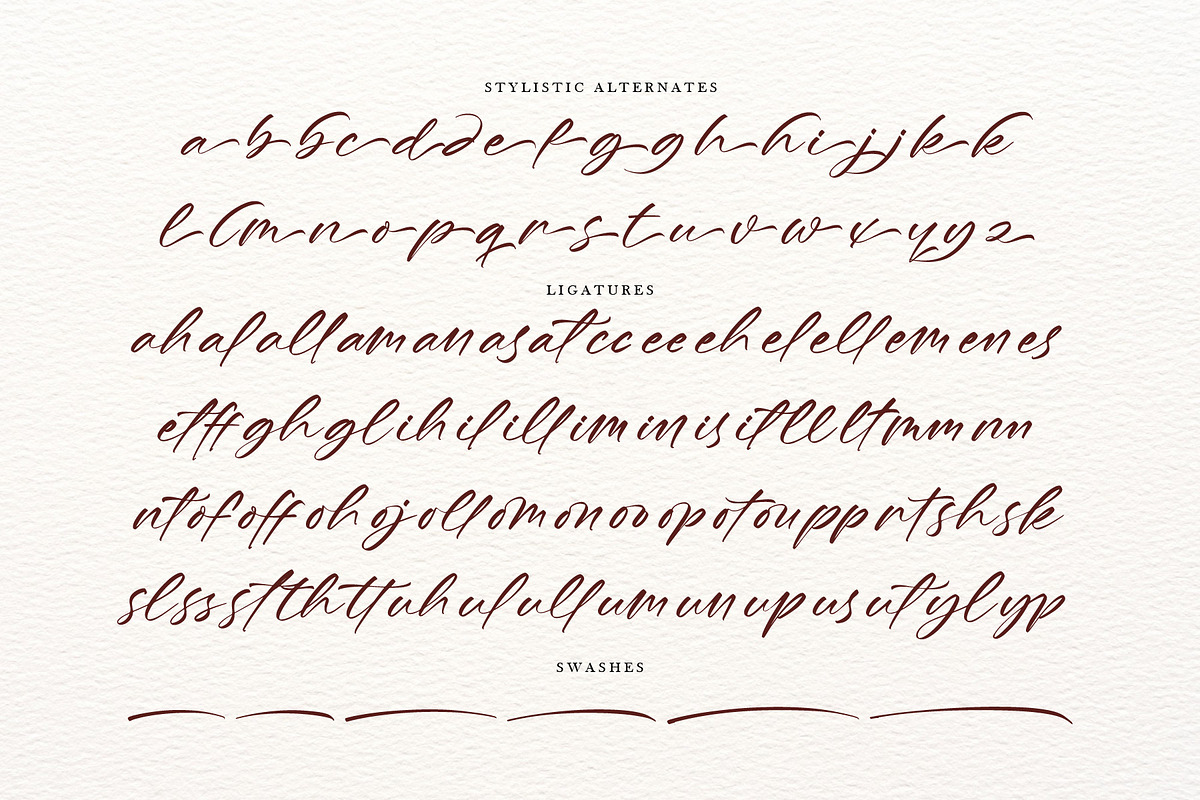 STYLISTIC ALTERNATES
a b b c d d e f g g h h i j j k k
l l m n o p q r s t u v w x y y z
LIGATURES
ah af al all am an as at cc ee eh el ell em en es
et ff gh gl ih il ill im in is it ll lt mm nn
nt of off oh oj oll om on oo op ot ou pp rt sh sk
sl ss st th tt uh ul ull um un up us ut yl yp
SWASHES